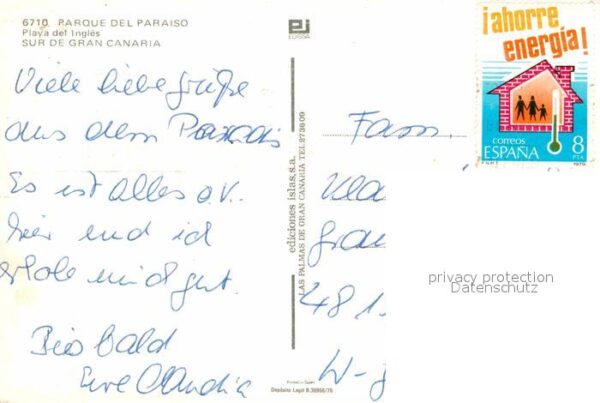 6710 PARQUE DEL PARAISO
Playa del Inglés
SUR DE GRAN CANARIA
Viele liebe Grüße
aus dem Paradis
Es ist alles o.k.
hier und ich
erhole mich gut.
Bis Bald
Eure Claudia
ediciones islas,s.a.
LAS PALMAS DE GRAN CANARIA TEL 273609
EUROPA
Printed in Spain
Depósito Legal B.
¡ahorre
energía!
correos
ESPAÑA
8
PTA
F.N.M.T.
1979
Fam.
481
W-
privacy protection
Datenschutz